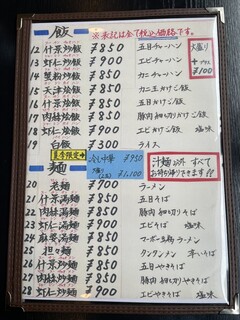 飯 ※表記は全て税込価格です。
12 什景炒飯 ¥850 五目チャーハン
13 虾仁炒飯 ¥900 エビチャーハン
14 蟹粉炒飯 ¥850 カニチャーハン
大盛り + プラス ¥100
15 天津烩飯 ¥850 カニ玉かけご飯
16 什景烩飯 ¥850 五目かけご飯
17 肉絲烩飯 ¥850 豚肉細切りかけご飯
18 虾仁烩飯 ¥900 エビかけご飯 塩味
19 白飯 ¥300 ライス
夏季限定→ 冷し中華 ¥950
¥1,100
麺
汁麺以外すべて
お持ち帰りできます!!
20 老麺 ¥700 ラーメン
21 什景湯麺 ¥850 五目そば
22 肉絲湯麺 ¥850 豚肉細切りそば
23 虾仁湯麺 ¥900 エビそば 塩味
24 麻婆湯麺 ¥850 マーボー豆腐ラーメン
25 担々麺 ¥850 タンタンメン 辛いそば
26 什景炒麺 ¥850 五目やきそば
27 肉絲炒麺 ¥850 豚肉細切りやきそば
28 虾仁炒麺 ¥900 エビやきそば 塩味